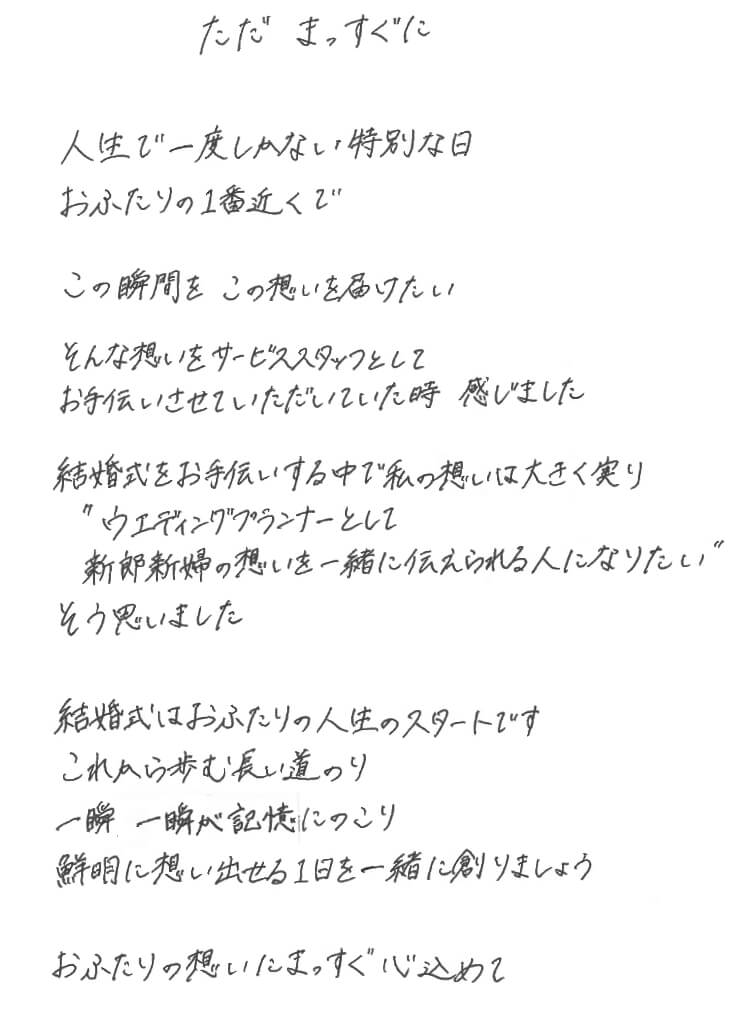 ただ まっすぐに
人生で一度しかない特別な日
おふたりの1番近くで
この瞬間を この想いを届けたい
そんな想いをサービススタッフとして
お手伝いさせていただいていた時 感じました
結婚式をお手伝いする中で私の想いは大きく実り
"ウエディングプランナーとして
新郎新婦の想いを一緒に伝えられる人になりたい"
そう思いました
結婚式はおふたりの人生のスタートです
これから歩む長い道のり
一瞬 一瞬が記憶にのこり
鮮明に想い出せる1日を一緒に創りましょう
おふたりの想いにまっすぐ心込めて